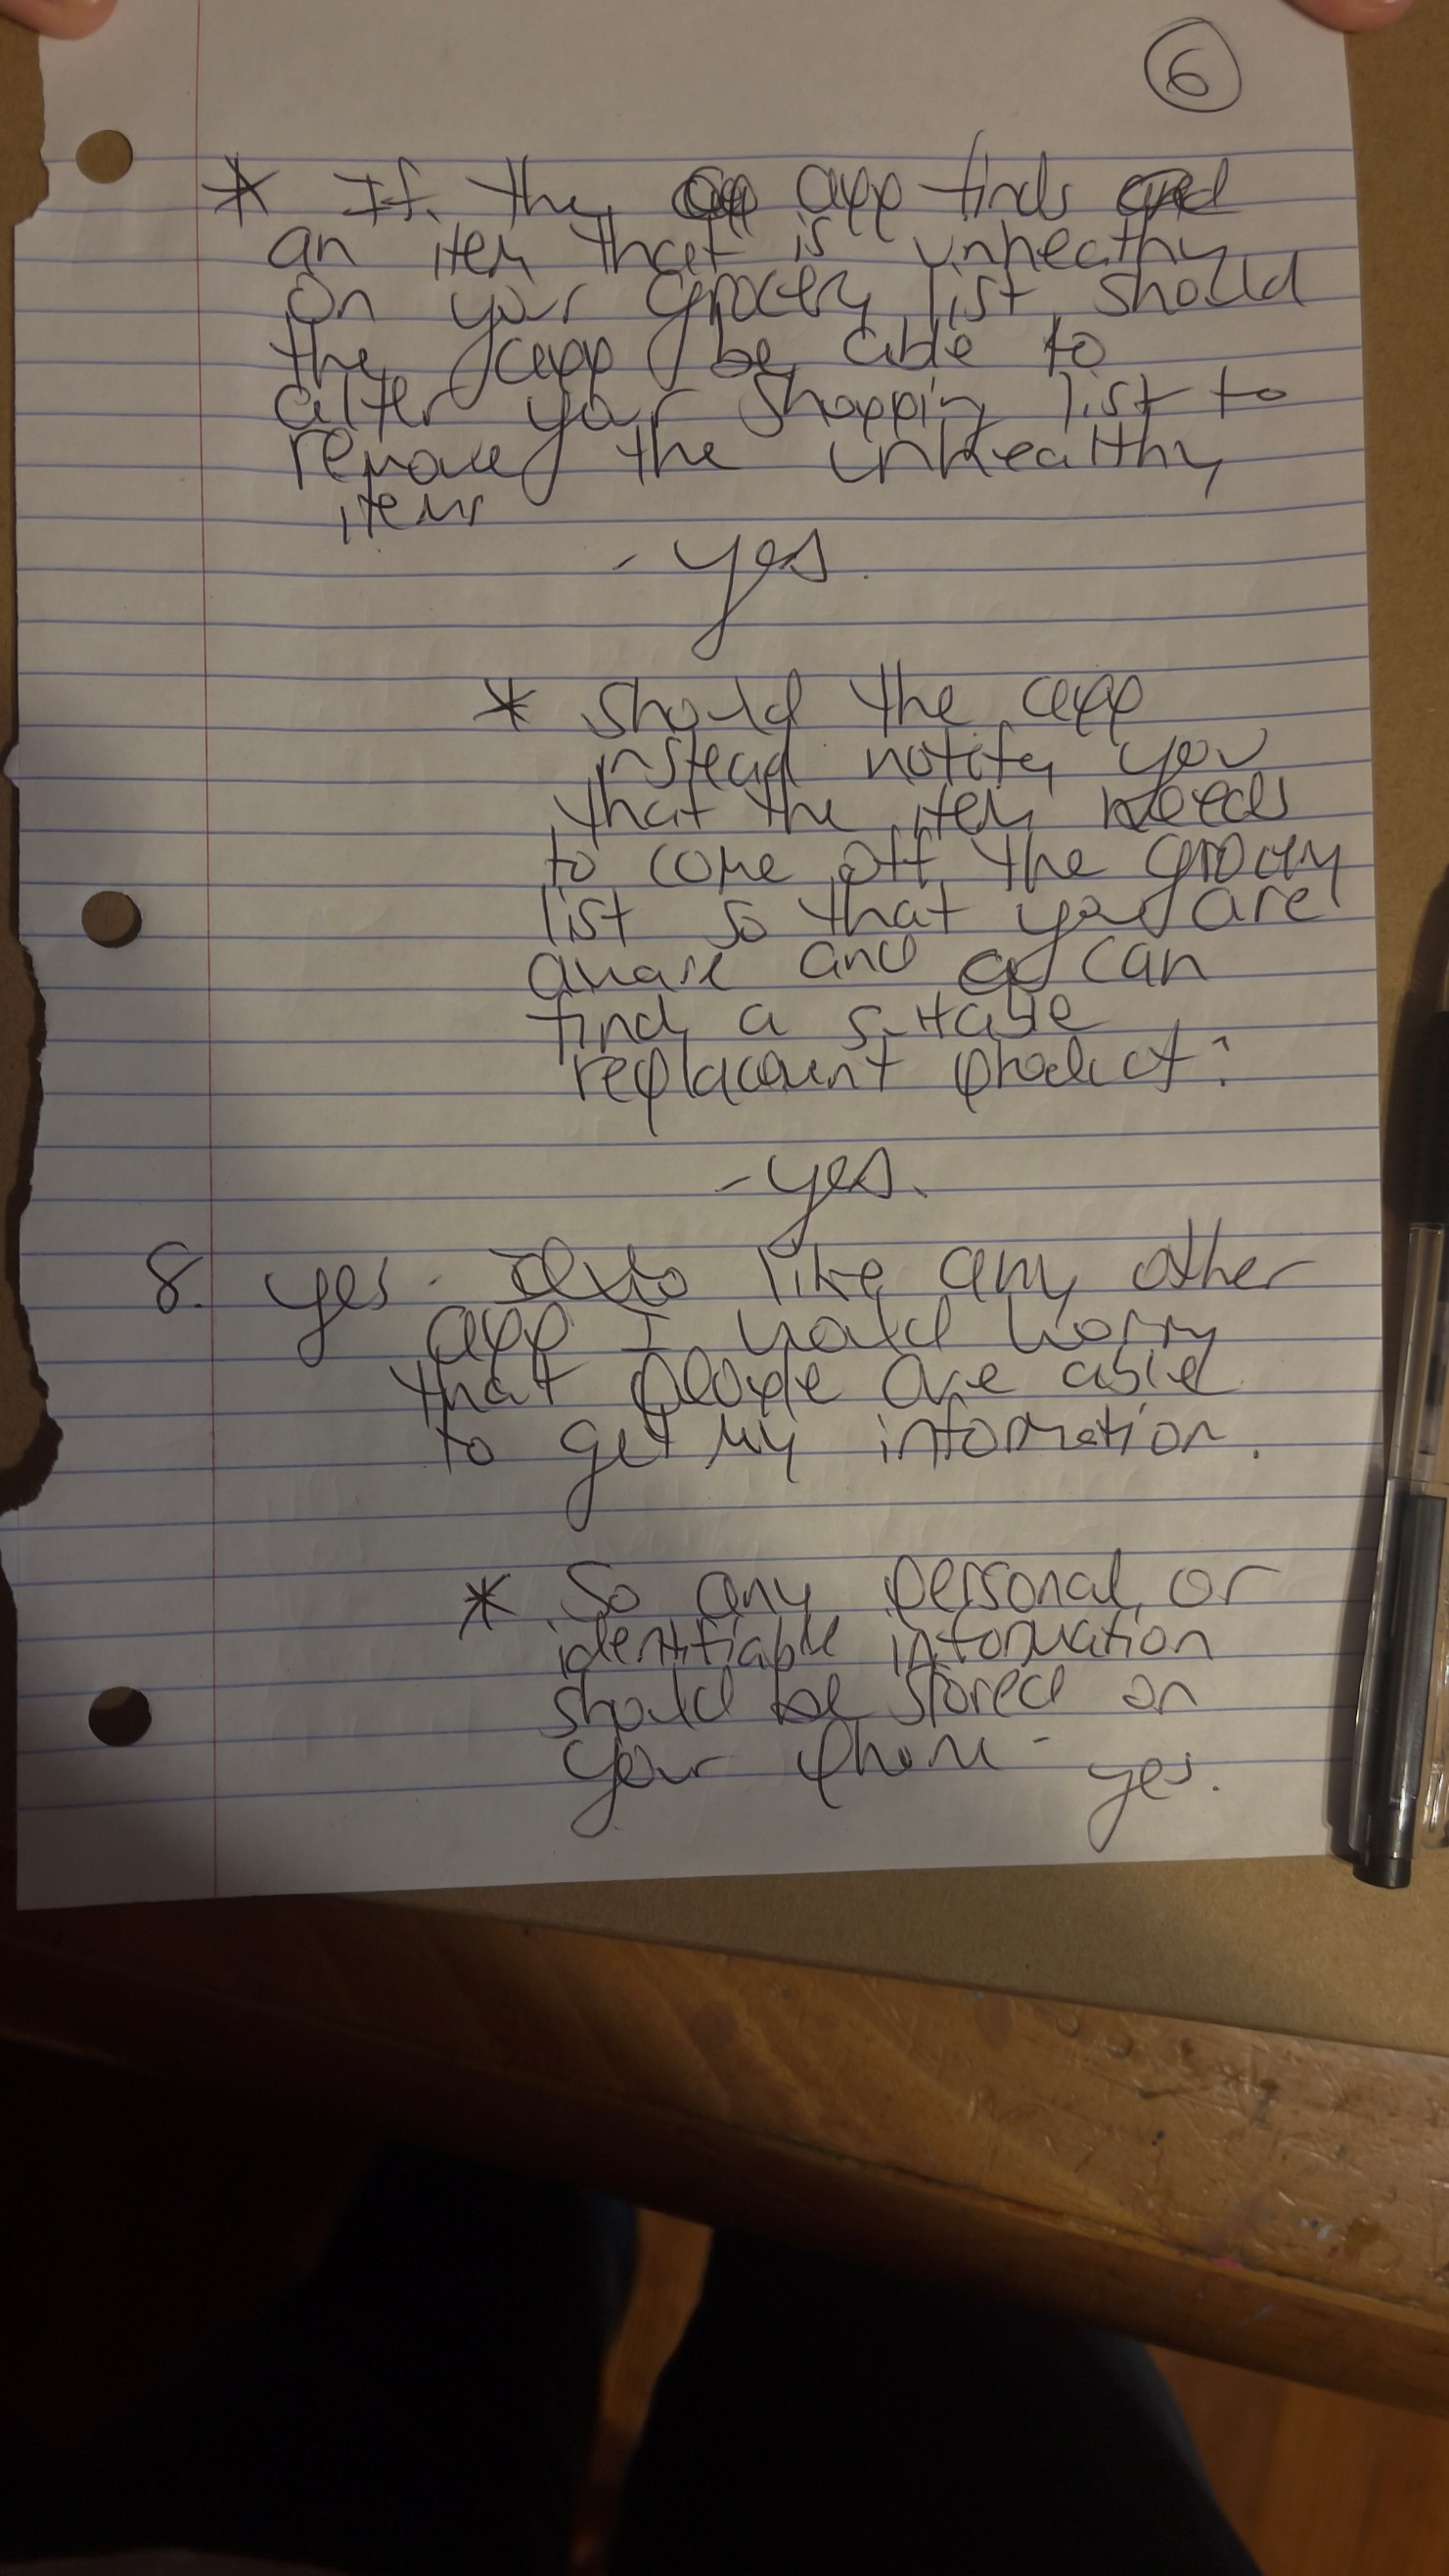 6
* If the app finds
an item that is unheathy
on your grocery list should
the app be able to
alter your shopping list to
remove the unhealthy
item
- yes.
* should the app
instead notify you
that the item needs
to come off the grocery
list so that you are
aware and can
find a suitable
replacement product?
- yes.
8. yes - like any other
app I would worry
that people are able
to get my information.
* So any personal or
identifiable information
should be stored on
your phone -
yes.